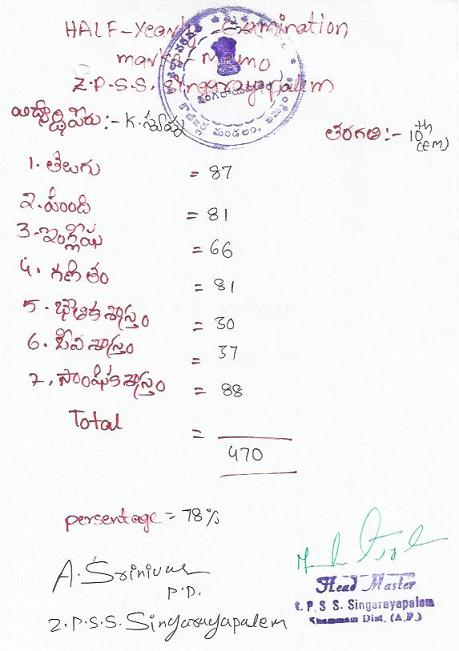 HALF-Yearly Examination
marks-Memo
Z.P.S.S. Singarayapalem
విద్యార్థి పేరు:- K.పుష్ప తరగతి:- 10th (EM)
1. తెలుగు = 87
2. హింది = 81
3. ఇంగ్లీషు = 66
4. గణితం = 81
5. భౌతిక శాస్త్రం = 30
6. జీవ శాస్త్రం = 37
7. సాంఘిక శాస్త్రం = 88
Total =
470
percentage = 78%
A. Srinivas
P.D.
Z.P.S.S. Singarayapalem
Head Master
Z. P. S S. Singarayapalem
Khammam Dist. (A.P.)